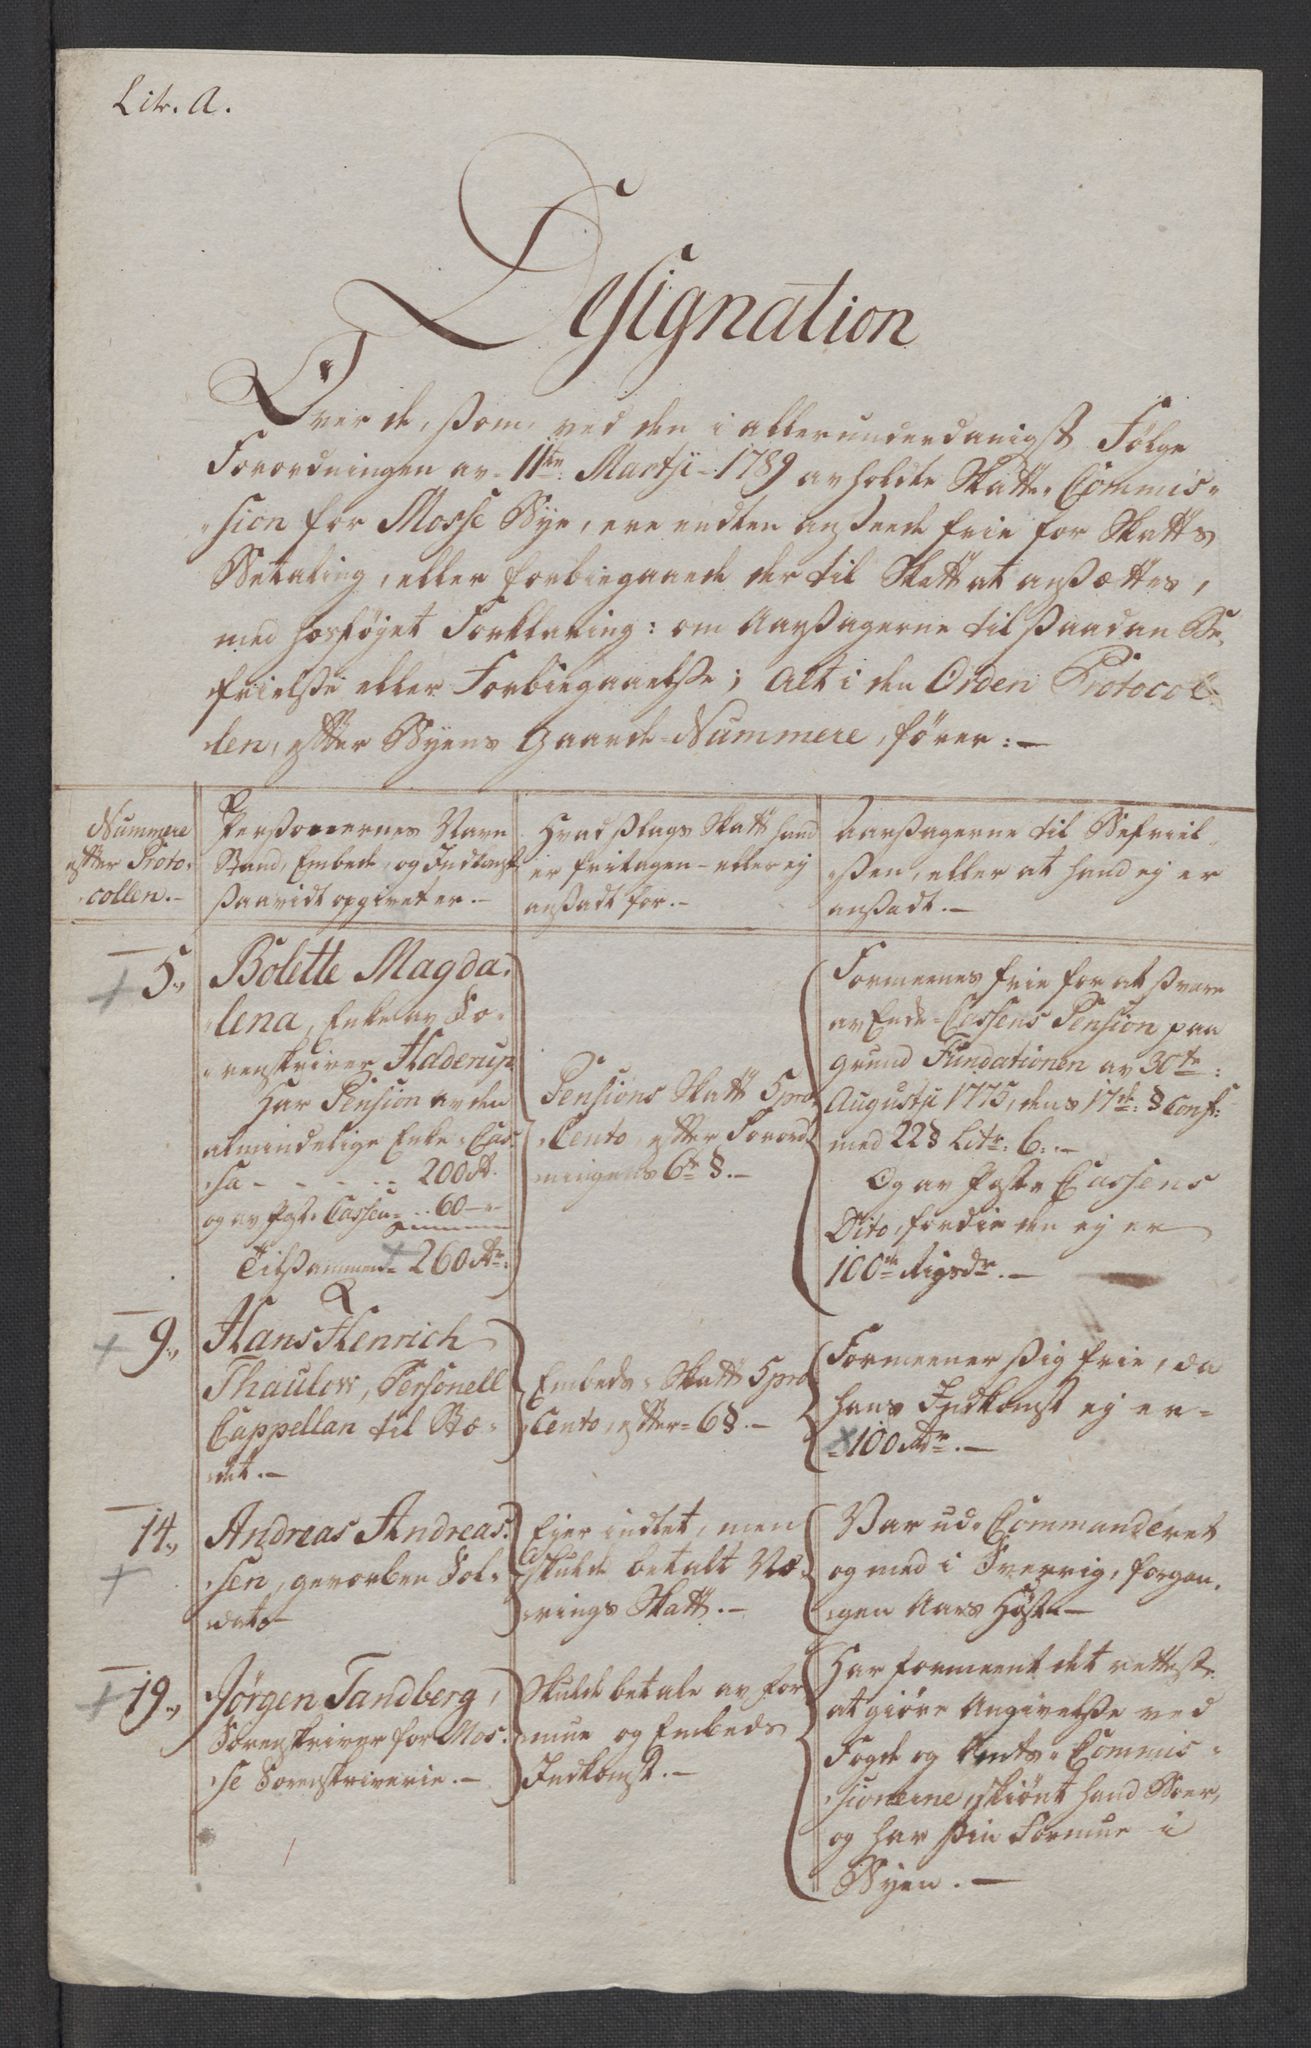 Litr. A.
Designation
Over de, som, ved den i allerunderdanigst Følge
Forordningen av 11te Martji 1789 avholdte Skatte-Commis-
sion for Mosse Bye, ere endten anseede frie for Skatts
Betaling, eller forbiegaaede der til Skatt at ansættes,
med hosføjet Forklaring: om Aarsagerne til saadan Be-
frielse eller Forbiegaaelse; Alt i den Orden Protocol-
len, efter Byens Gaards-Nummere, fører:-
Nummere
efter Proto-
collen.-
Personernes Navn
Stand, Embede, og Indkomst
saavidt opgivet er.-
Hvad slags Skatt hand
er fritagen - eller ej
ansadt for.-
Aarsagerne til Befriel-
sen, eller at hand ej er
ansadt.-
5.
Bolette Magda-
lena, Enke av So-
renskriver Haderup
Har Pension av den
almindelige Enke-Cas-
sa - - - - 200 R.
og av Post-Cassen - 60 -
Tilsammen 260 Rr.
Pensions Skatt 5 pro
Cento, efter Forord-
ningens 6te §.-
Formeenes frie for at svare
av Enke-Cassens Pension paa
Grund Fundationen av 30te
Augustji 1775, dens 17de § Conf:
med 22 § Litr: 6.-
Og av Post-Cassens
Dito, fordie den ej er
100de Rigsdr.-
9.
Hans Henrich
Thaulow, Personell
Cappellan til Stæ-
det.-
Embeds-Skatt 5 pro
Cento, efter 6 §.-
Formeener sig frie, da
hans Indkomst ej er
100 Rdr.-
14.
Andreas Andreas-
sen, gevorben Sol-
dat
Ejer indtet, men
skulde betalt Næ-
rings Skatt.-
Var ud-Commanderet
og med i Sverrig, forgan-
gen Aars Høst.-
19.
Jørgen Sandberg,
Sorenskriver for Mos-
se Sorenskriverie.-
Skulde betale av For-
mue og Embeds
Indkomst.-
Har formeent det rettest
at giøre Angivelse ved
Fogde og Amts-Commis-
sionerne, skiønt hand Boer,
og har sin Formue i
Byen.-